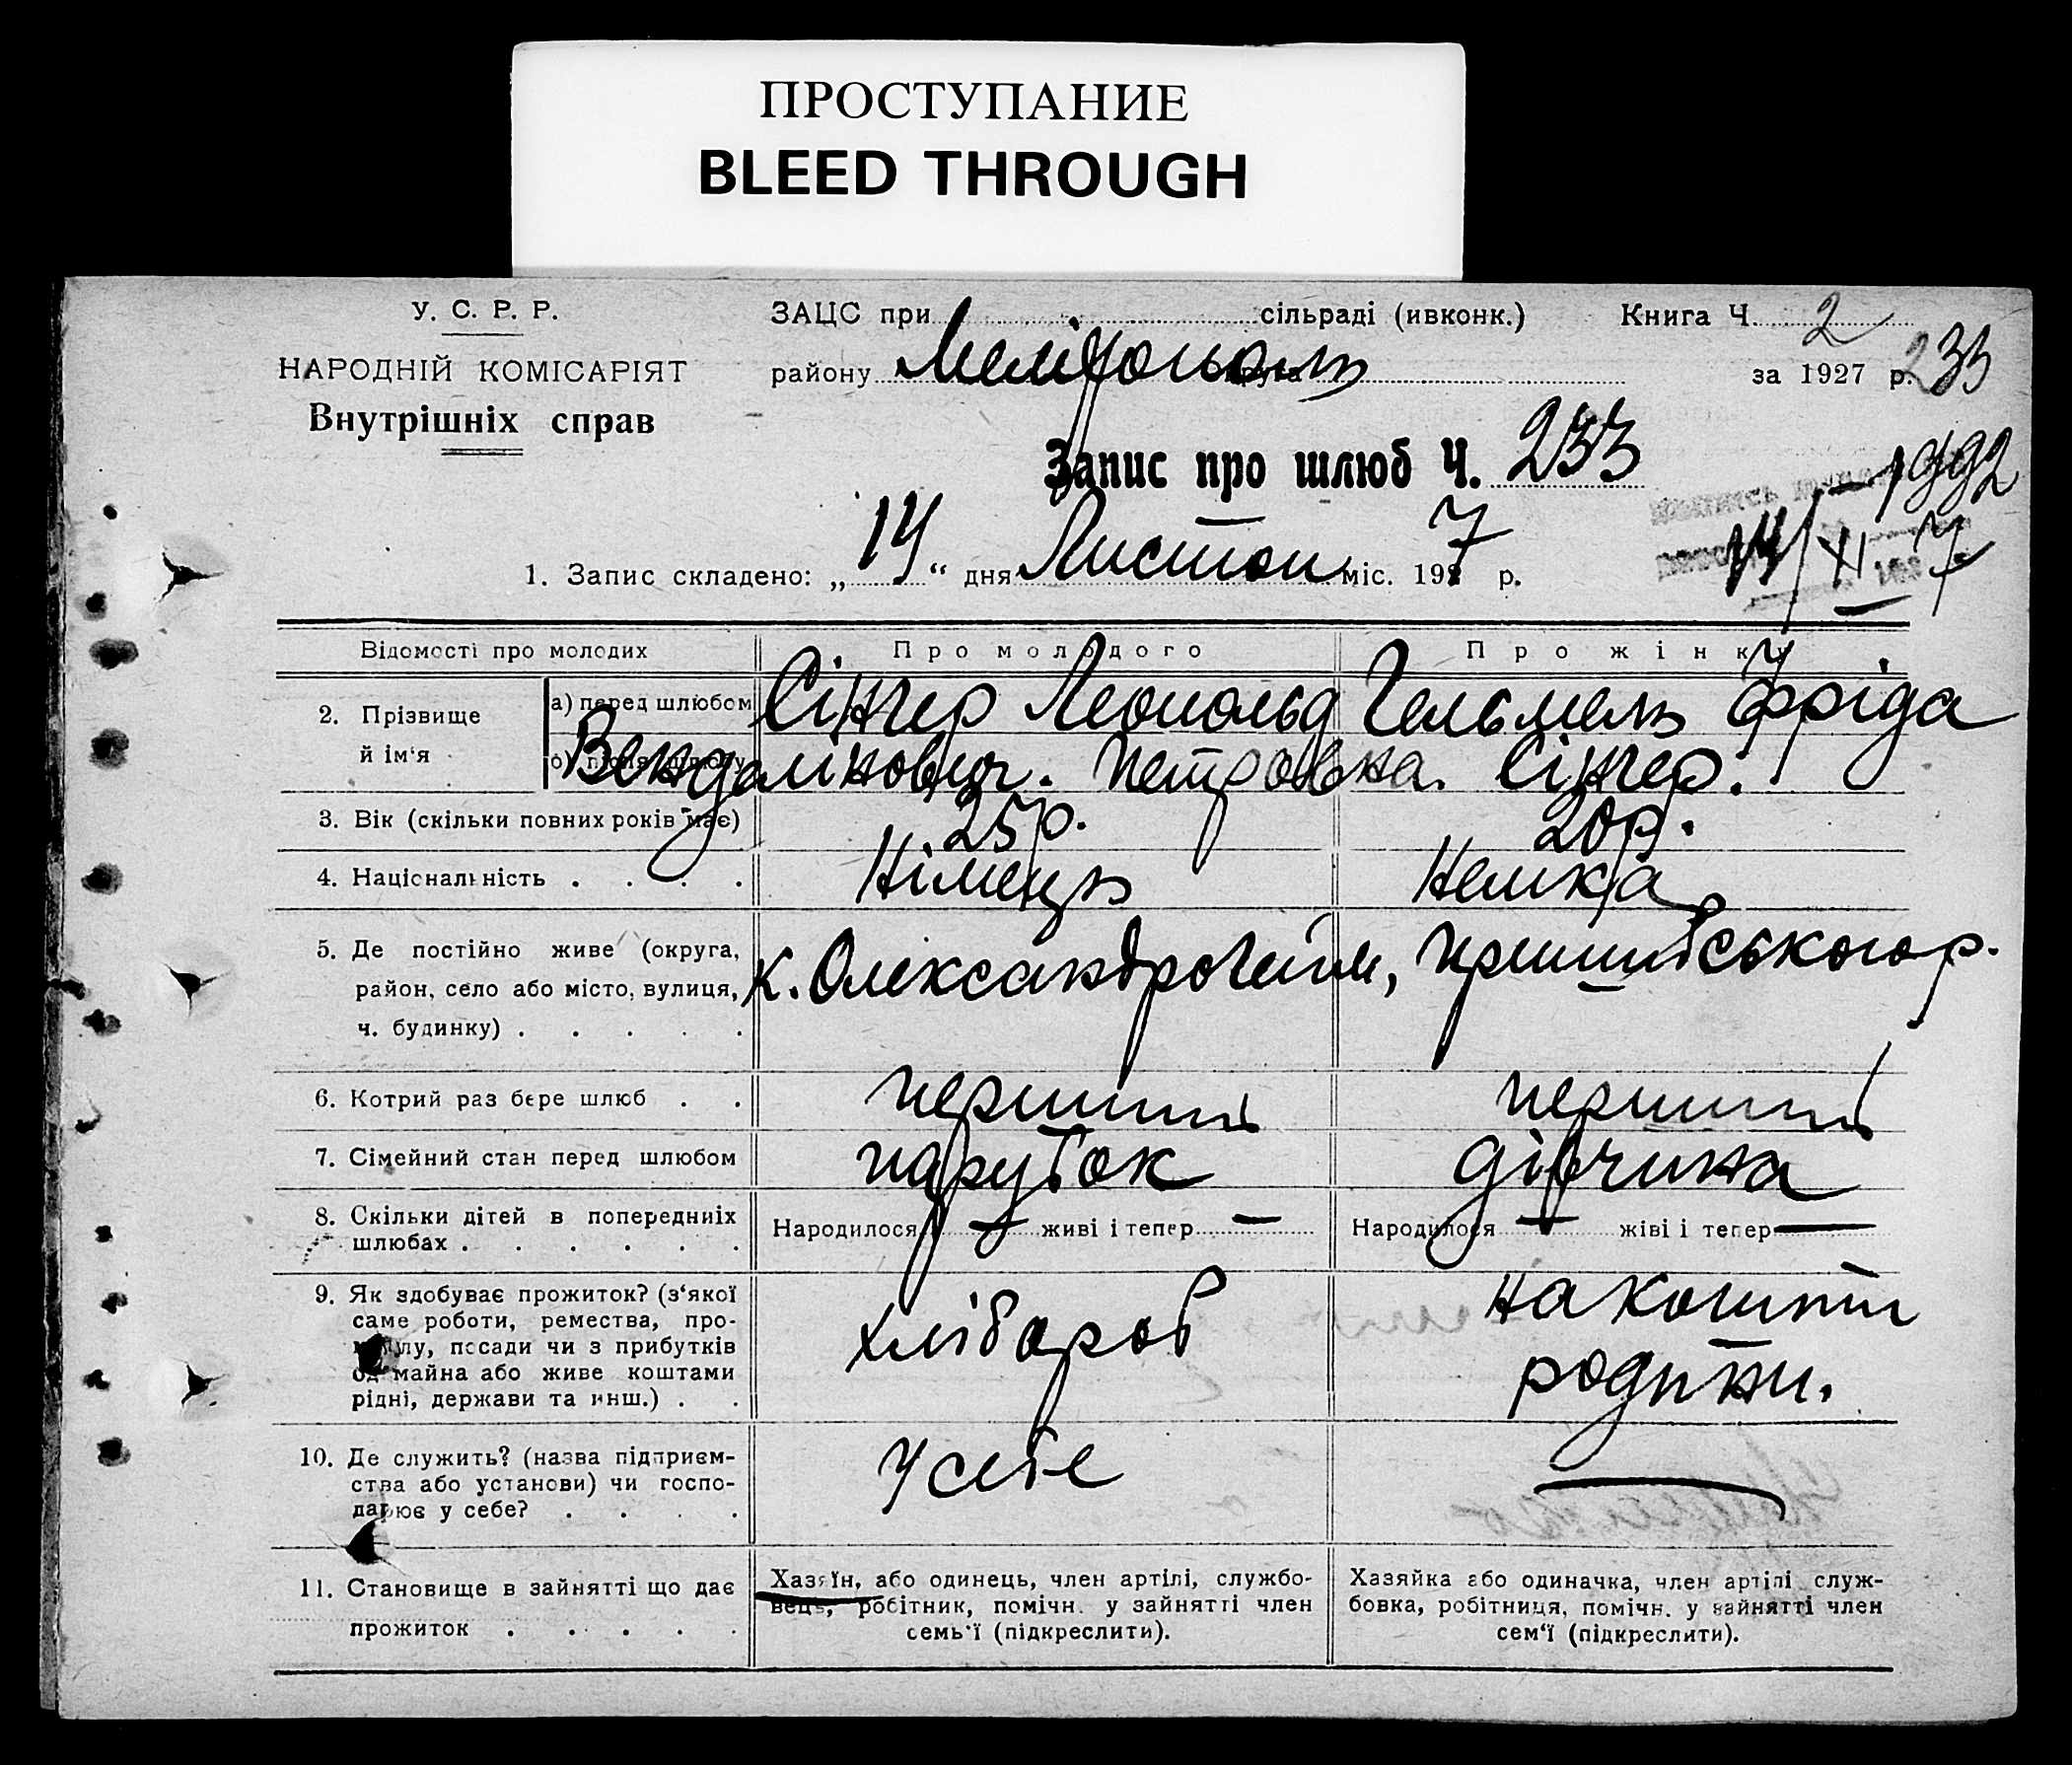 ПРОСТУПАНИЕ
BLEED THROUGH
У. С. Р. Р.
НАРОДНІЙ КОМІСАРІЯТ
Внутрішніх справ
ЗАЦС при сільраді (ивконк.)
району Мелітополь
Книга Ч. 2
за 1927 р. 233
Запис про шлюб Ч. 233
1992
14/XI 7
1. Запис складено: „14“ дня Листоп міс. 1927 р.
Відомості про молодих
Про молодого
Про жінку
2. Прізвище й ім‘я
а) перед шлюбом
б) після шлюбу
Сінгер Леопольд Гельмель Фріда
Вендалінович. Петровна. Сінгер.
3. Вік (скільки повних років має) 25 р. 20 р.
4. Національність Німець Немка
5. Де постійно живе (округа,
район, село або місто, вулиця,
ч. будинку)
к. Олександрогейм, Пришибського р.
6. Котрий раз бере шлюб перший перший
7. Сімейний стан перед шлюбом парубок дівчина
8. Скільки дітей в попередниіх
шлюбах
Народилося — живі і тепер —
Народилося — жіві і тепер —
9. Як здобуває прожиток? (з‘якої
саме роботи, ремества, про-
мислу, посади чи з прибутків
од майна або живе коштами
рідні, держави та инш.)
хлібороб
на кошти
родини.
10. Де служить? (назва підприєм-
ства або установи) чи госпо-
дарює у себе?
У себе
—
11. Становище в зайнятті що дає
прожиток
Хазяїн, або одинець, член артілі, службо-
вець, робітник, помічн. у зайнятті член
семь‘ї (підкреслити).
Хазяйка або одиначка, член артілі служ-
бовка, робітниця, помічн. у зайнятті член
сем‘ї (підкреслити).